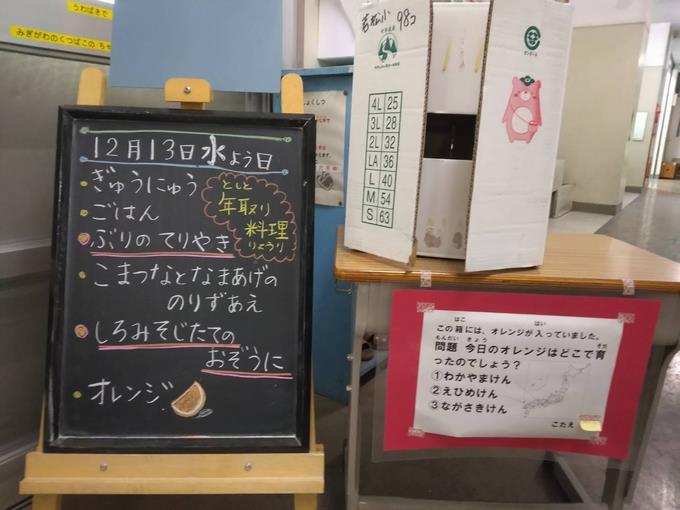 うわばきで
みぎがわのくつばこの
12月13日水よう日
ぎゅうにゅう
ごはん
ぶりのてりやき
こまつなとなまあげの
のりずあえ
しろみそじたての
おぞうに
オレンジ
としと
年取り
料理
りょうり
若松小 98コ
4L 25
3L 28
2L 32
LA 36
L 40
M 54
S 63
はこ はい
この箱には、オレンジが入っていました。
もんだい きょう そだ
問題 今日のオレンジはどこで育
ったのでしょう？
①わかやまけん
②えひめけん
③ながさきけん
こたえ